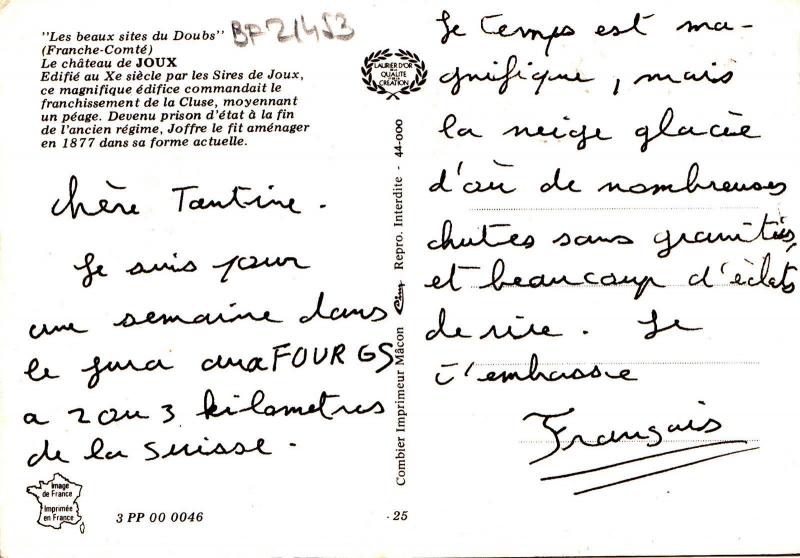 "Les beaux sites du Doubs"
(Franche-Comté)
Le château de JOUX
Edifié au Xe siècle par les Sires de Joux,
ce magnifique édifice commandait le
franchissement de la Cluse, moyennant
un péage. Devenu prison d'état à la fin
de l'ancien régime, Joffre le fit aménager
en 1877 dans sa forme actuelle.
BF21453
LAURIER D'OR
DE LA
QUALITÉ
CRÉATION
chère Tantine.
Je suis pour
une semaine dans
le jura aux FOURGS
a 2 ou 3 kilometres
de la suisse.
Combier Imprimeur Mâcon Cim Repro. Interdite - 44-000
Le temps est ma-
gnifique, mais
la neige glacée
d'où de nombreuses
chutes sans gravités,
et beaucoup d'éclats
de rire. Je
t'embrasse
Français
Image
de France
Imprimée
en France
3 PP 00 0046
- 25